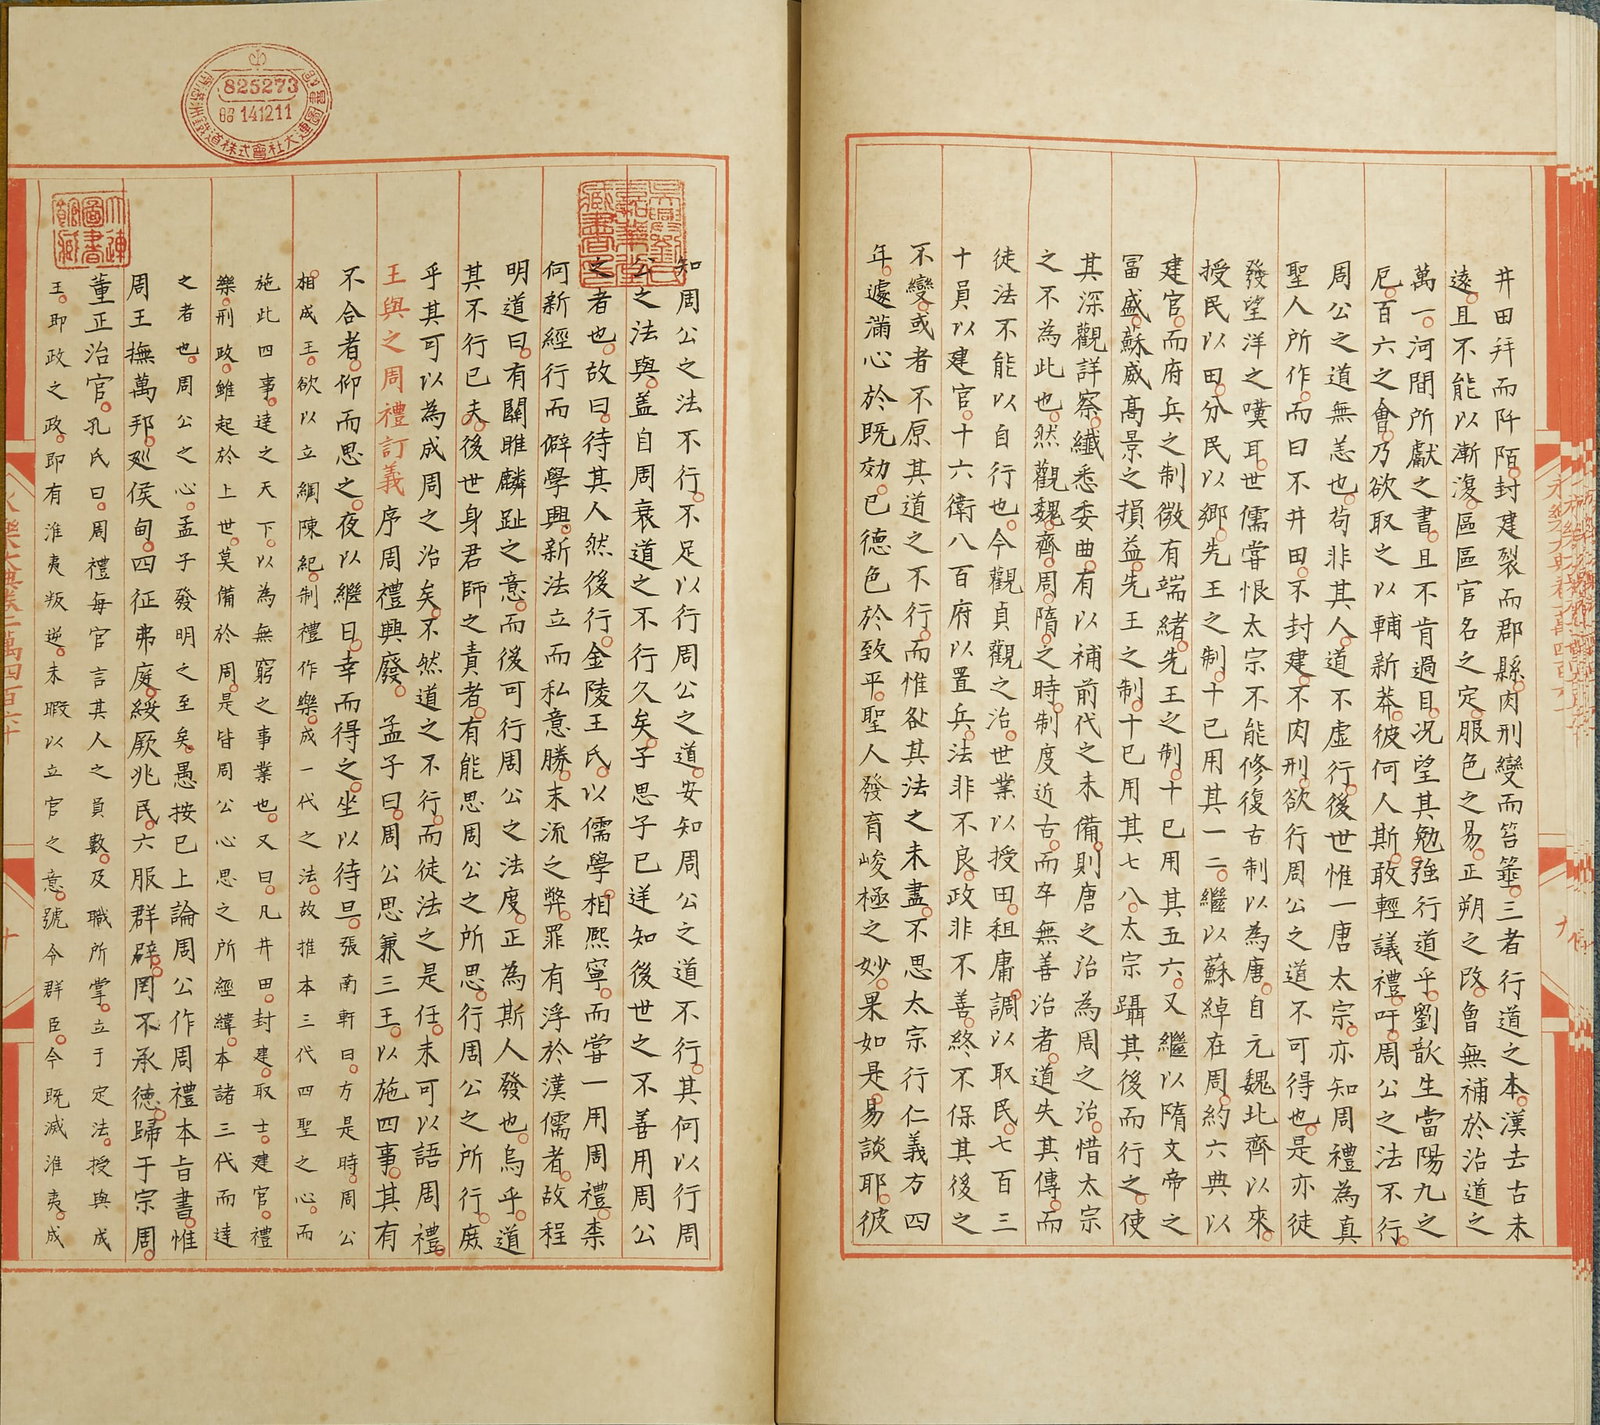 井田拜而阡陌封建裂而郡縣肉刑變而笞箠三者行道之本漢去古未
遠且不能以漸復區區官名之定服色之易正朔之改魯無補於治道之
萬一河間所獻之書且不肯過目況望其勉強行道乎劉歆生當陽九之
厄百六之會乃欲取之以輔新莽彼何人斯敢輕議禮吁周公之法不行
周公之道無恙也苟非其人道不虛行後世惟一唐太宗亦知周禮為真
聖人所作而曰不井田不封建不肉刑欲行周公之道不可得也是亦徒
發望洋之嘆耳世儒嘗恨太宗不能修復古制以為唐自元魏北齊以來
授民以田分民以鄉先王之制十已用其一二繼以蘇綽在周約六典以
建官而府兵之制微有端緒先王之制十已用其五六又繼以隋文帝之
冨盛蘇威高景之損益先王之制十已用其七八太宗躡其後而行之使
其深觀詳察纖悉委曲有以補前代之未備則唐之治為周之治惜太宗
之不為此也然觀魏齊周隋之時制度近古而卒無善治者道失其傳而
徒法不能以自行也今觀貞觀之治世業以授田租庸調以取民七百三
十員以建官十六衛八百府以置兵法非不良政非不善終不保其後之
不變或者不原其道之不行而惟咎其法之未盡不思太宗行仁義方四
年遽滿心於既効已德色於致平聖人發育峻極之妙果如是易談耶彼
知周公之法不行不足以行周公之道安知周公之道不行其何以行周
公之法與蓋自周衰道之不行久矣子思子已逆知後世之不善用周公
之者也故曰待其人然後行金陵王氏以儒學相熈寧而嘗一用周禮柰
何新經行而僻學興新法立而私意勝末流之弊罪有浮於漢儒者故程
明道曰有關睢麟趾之意而後可行周公之法度正為斯人發也烏乎道
其不行已夫後世身君師之責者有能思周公之所思行周公之所行庶
乎其可以為成周之治矣不然道之不行而徒法之是任未可以語周禮
王與之周禮訂義序周禮興廢 孟子曰周公思兼三王以施四事其有
不合者仰而思之夜以繼日幸而得之坐以待旦張南軒曰方是時周公
相成王欲以立綱陳紀制禮作樂成一代之法故推本三代四聖之心而
施此四事達之天下以為無窮之事業也又曰凡井田封建取士建官禮
樂刑政雖起於上世莫備於周是皆周公心思之所經緯本諸三代而達
之者也周公之心孟子發明之至矣愚按已上論周公作周禮本旨書惟
周王撫萬邦廵侯甸四征弗庭綏厥兆民六服群辟罔不承德歸于宗周
董正治官孔氏曰周禮每官言其人之員數及職所掌立于定法授與成
王即政之政即有淮夷叛逆未暇以立官之意號令群臣今既滅淮夷成
825273
昭 141211
南滿洲鐵道株式會社大連圖書館
吳興劉氏嘉業堂藏書印
大連圖書館藏
永樂大典卷一萬四百六十
十